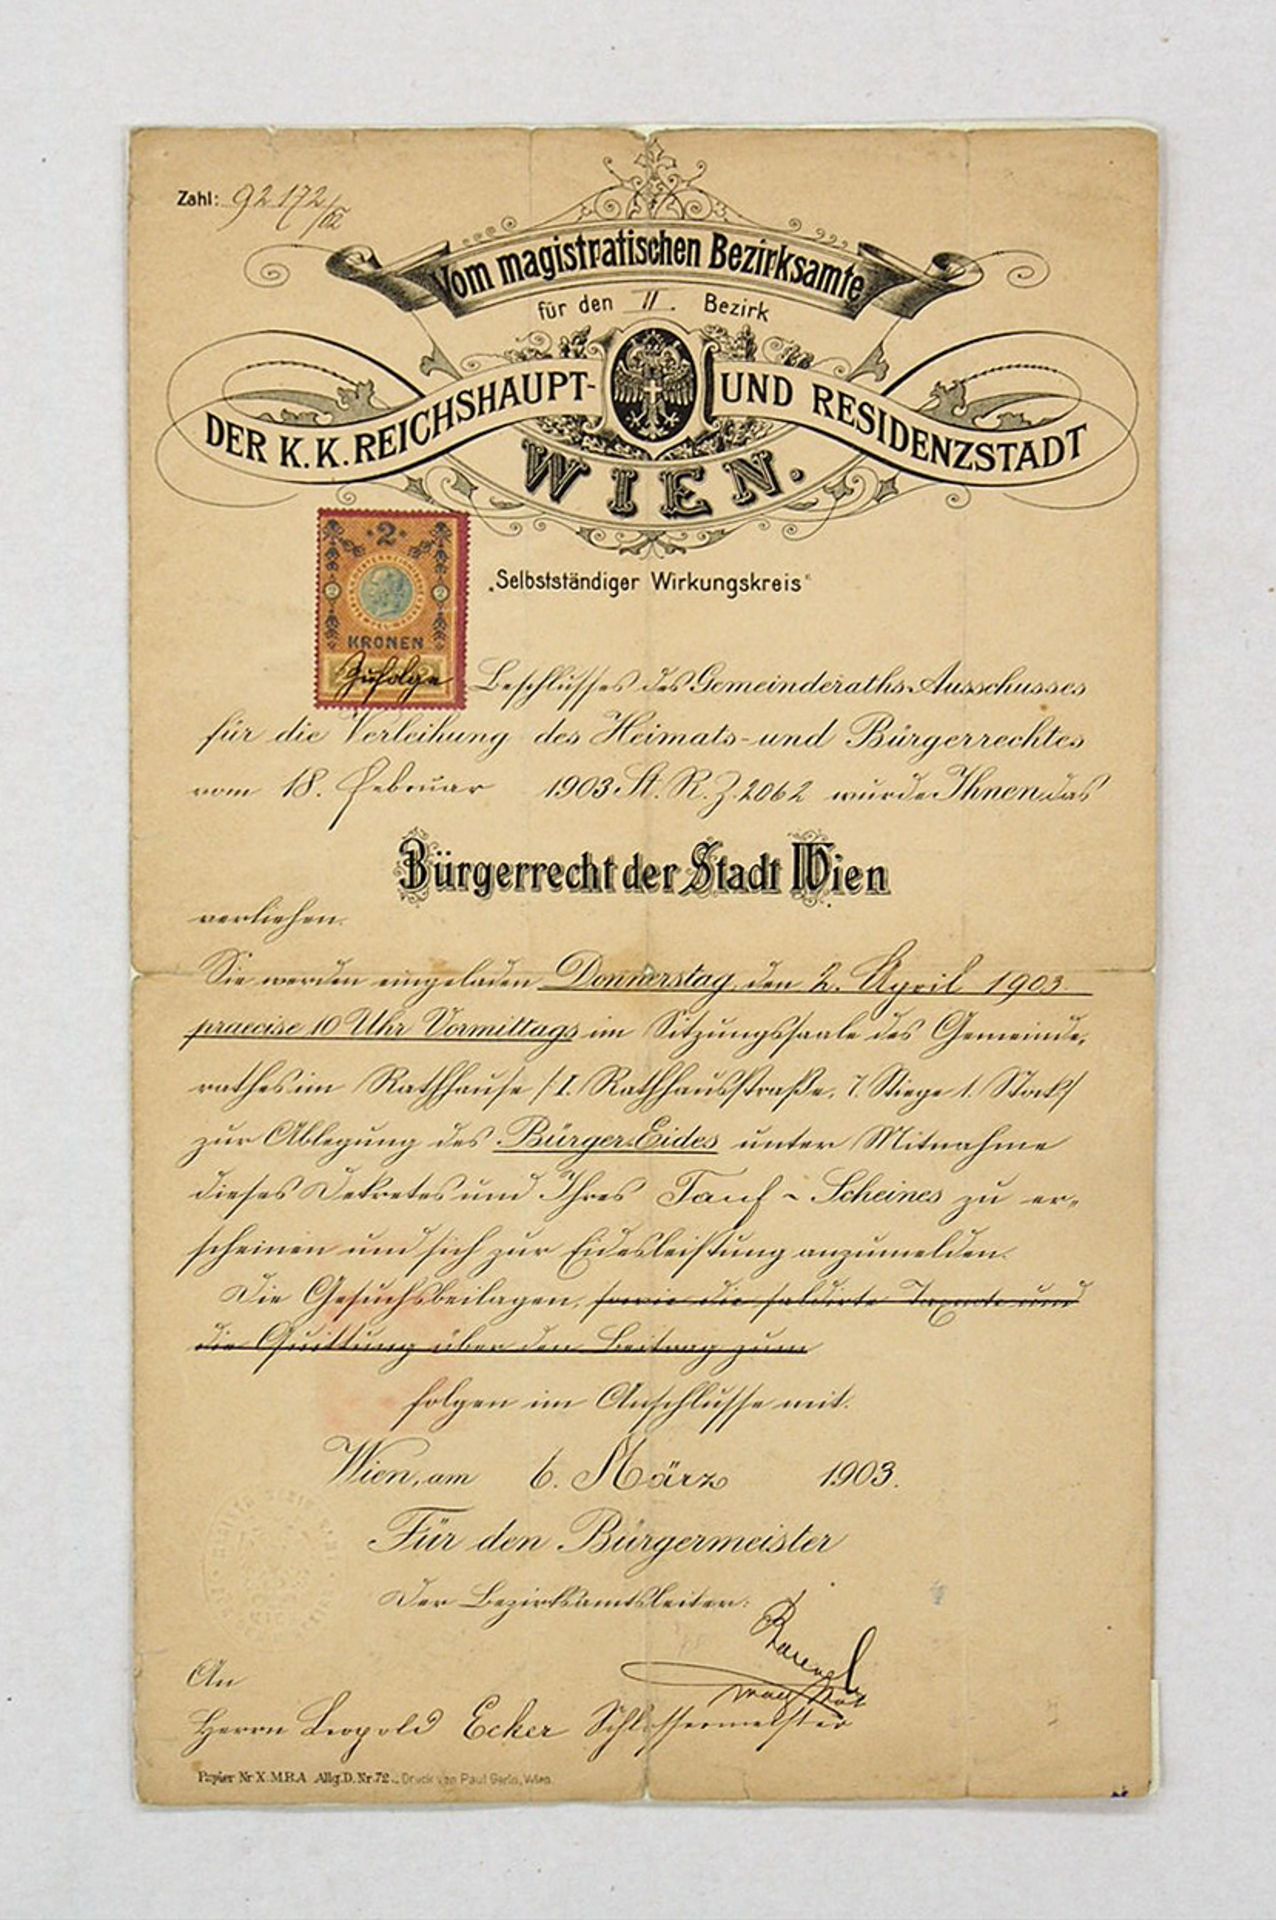 Zahl: 92172/02
Vom magistratischen Bezirksamte
für den II. Bezirk
DER K. K. REICHSHAUPT- UND RESIDENZSTADT
WIEN.
„Selbstständiger Wirkungskreis“
2
2 2
KRONEN
Zufolge Beschlusses des Gemeinderaths-Ausschusses
für die Verleihung des Heimats- und Bürgerrechtes
vom 18. Februar 1903 St. R. Z. 2062 wurde Ihnen das
Bürgerrecht der Stadt Wien
verliehen.
Sie werden eingeladen Donnerstag, den 2. April 1903
praecise 10 Uhr Vormittags im Sitzungssaale des Gemeinde-
rathes im Rathhause /I. Rathhausstraße, 7. Stiege 1. Stock/
zur Ablegung des Bürger-Eides unter Mitnahme
dieses Dekretes und Ihres Tauf-Scheines zu er-
scheinen und sich zur Eidesleistung anzumelden.
Die Gesuchsbeilagen, sowie die saldirte Taxnote und
die Quittung über den Beitrag zum
folgen im Anschlusse mit.
Wien, am 6. März 1903.
Für den Bürgermeister
Der Bezirksamtsleiter:
An
Herrn Leopold Ecker Schlossermeister
Papier Nr X. M.B.A. Allg. D. Nr. 72. Druck von Paul Gerin, Wien.